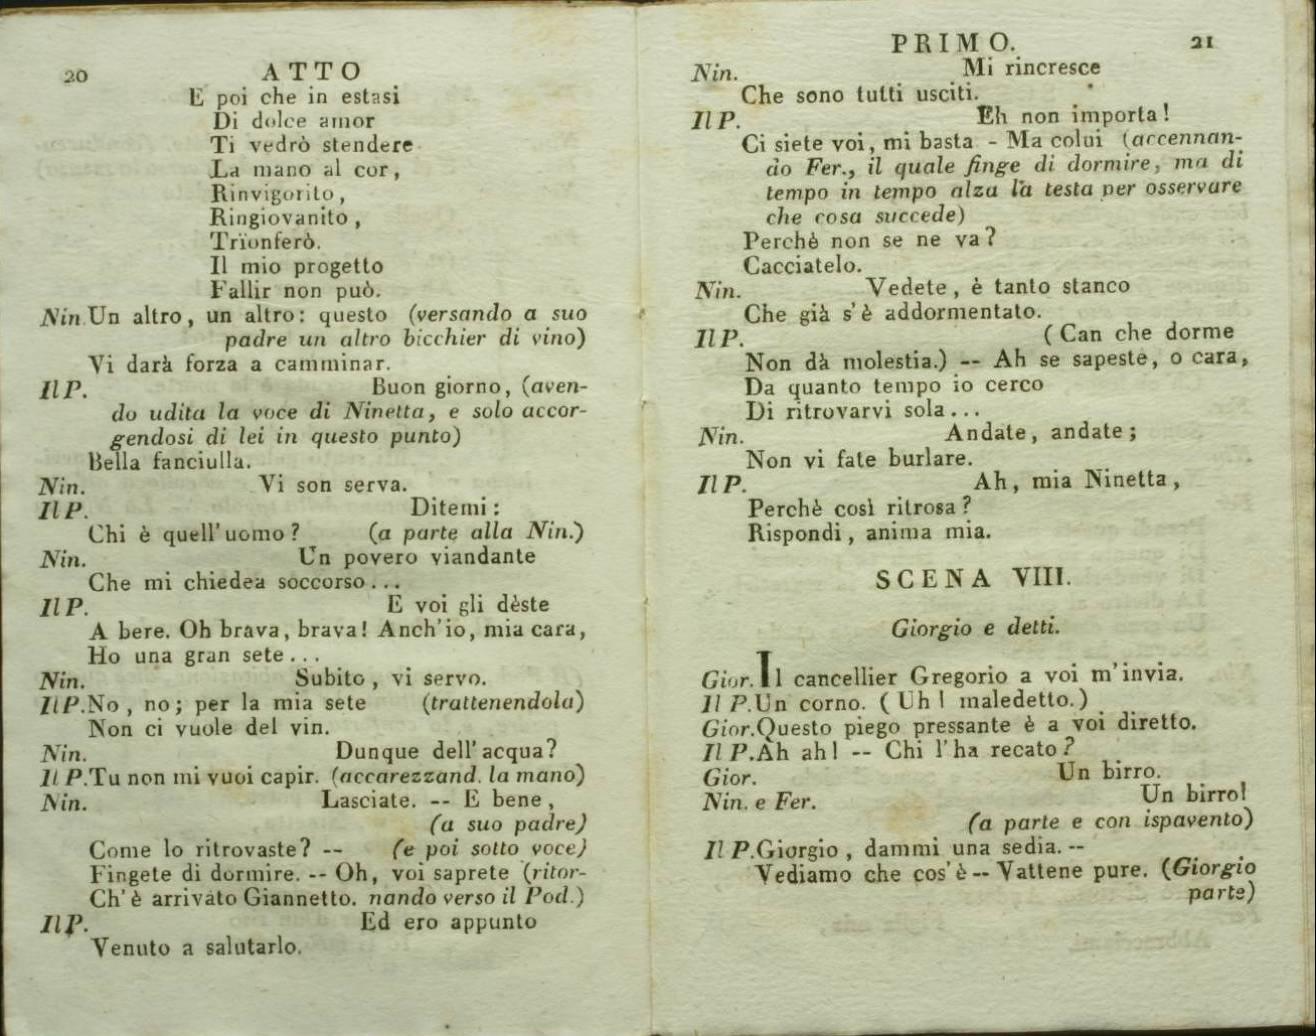 20 ATTO
E poi che in estasi
Di dolce amor
Ti vedrò stendere
La mano al cor,
Rinvigorito,
Ringiovanito,
Trionferò.
Il mio progetto
Fallir non può.
Nin. Un altro, un altro: questo (versando a suo
padre un altro bicchier di vino)
Vi darà forza a camminar.
Il P. Buon giorno, (aven-
do udita la voce di Ninetta, e solo accor-
gendosi di lei in questo punto)
Bella fanciulla.
Nin. Vi son serva.
Il P. Ditemi:
Chi è quell'uomo? (a parte alla Nin.)
Nin. Un povero viandante
Che mi chiedea soccorso...
Il P. E voi gli dèste
A bere. Oh brava, brava! Anch'io, mia cara,
Ho una gran sete...
Nin. Subito, vi servo.
Il P. No, no; per la mia sete (trattenendola)
Non ci vuole del vin.
Nin. Dunque dell'acqua?
Il P. Tu non mi vuoi capir. (accarezzand. la mano)
Nin. Lasciate. -- E bene,
(a suo padre)
Come lo ritrovaste? -- (e poi sotto voce)
Fingete di dormire. -- Oh, voi saprete (ritor-
Ch'è arrivato Giannetto. nando verso il Pod.)
Il P. Ed ero appunto
Venuto a salutarlo.
PRIMO. 21
Nin. Mi rincresce
Che sono tutti usciti.
Il P. Eh non importa!
Ci siete voi, mi basta - Ma colui (accennan-
do Fer., il quale finge di dormire, ma di
tempo in tempo alza la testa per osservare
che cosa succede)
Perchè non se ne va?
Cacciatelo.
Nin. Vedete, è tanto stanco
Che già s'è addormentato.
Il P. (Can che dorme
Non dà molestia.) -- Ah se sapeste, o cara,
Da quanto tempo io cerco
Di ritrovarvi sola...
Nin. Andate, andate;
Non vi fate burlare.
Il P. Ah, mia Ninetta,
Perchè così ritrosa?
Rispondi, anima mia.
SCENA VIII.
Giorgio e detti.
Gior. Il cancellier Gregorio a voi m'invia.
Il P. Un corno. (Uh! maledetto.)
Gior. Questo piego pressante è a voi diretto.
Il P. Ah ah! -- Chi l'ha recato?
Gior. Un birro.
Nin. e Fer. Un birro!
(a parte e con ispavento)
Il P. Giorgio, dammi una sedia. --
Vediamo che cos'è -- Vattene pure. (Giorgio
parte)